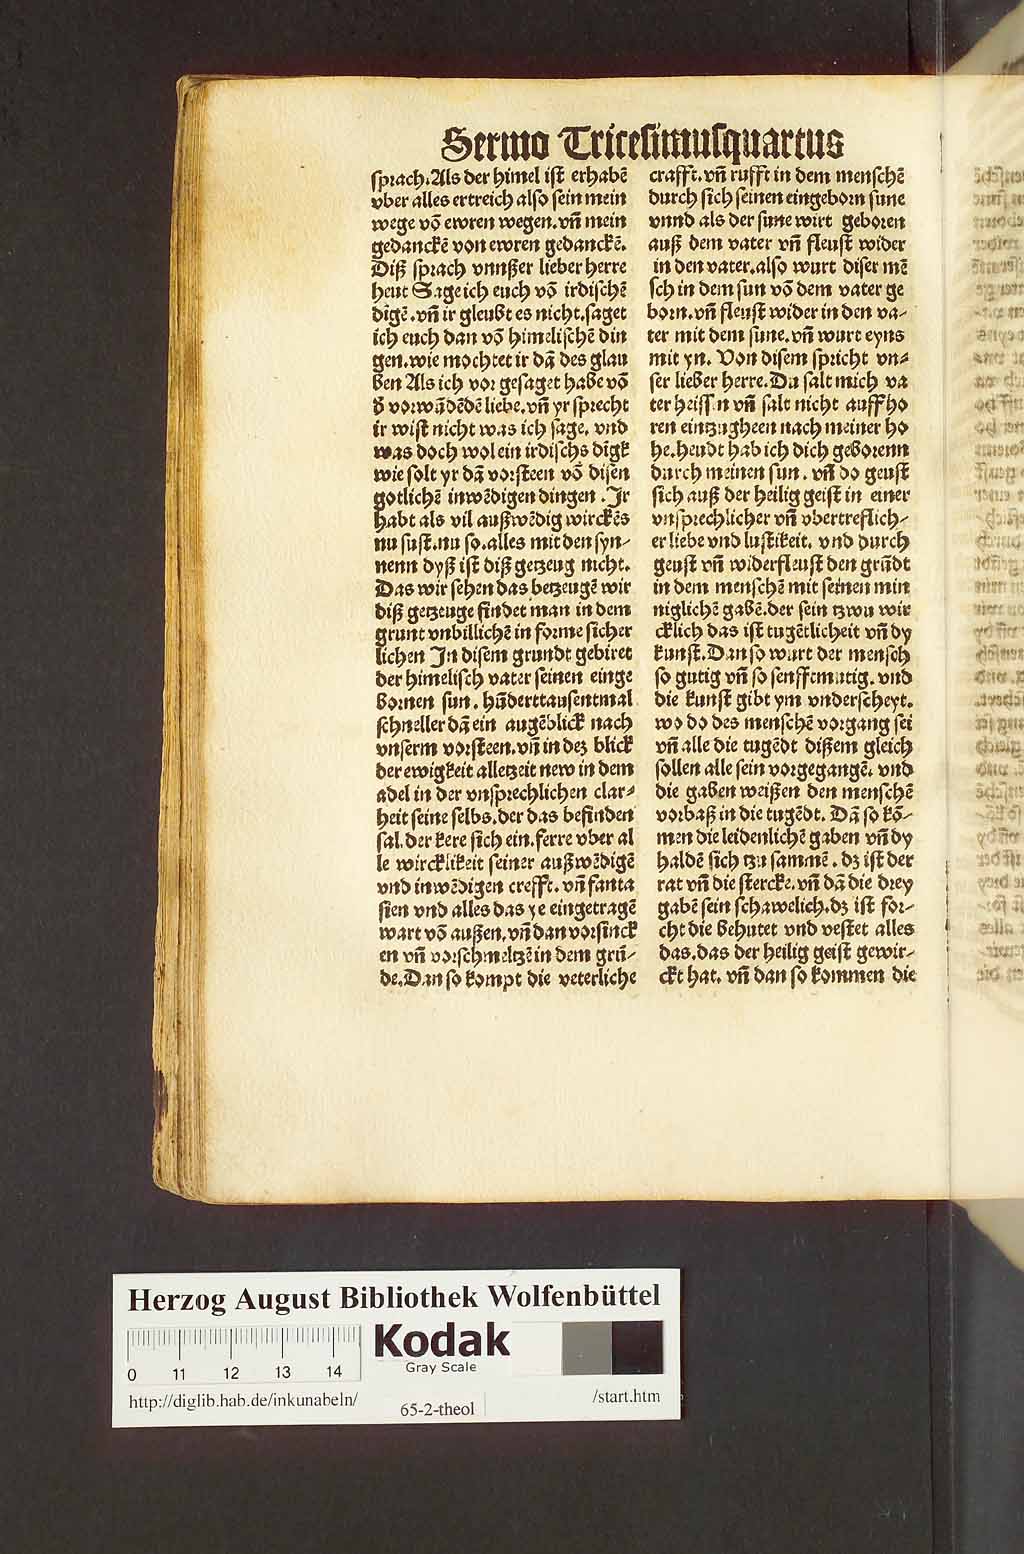 Sermo Tricesimusquartus
sprach. Als der himel ist erhabē
vber alles ertreich also sein mein
wege vō ewren wegen. vñ mein
gedanckē von ewren gedanckē.
Diß sprach vnnßer lieber herre
heut Sage ich euch vō irdischē
digē. vñ ir gleubt es nicht. saget
ich euch dan vō himelischē din
gen. wie mochtet ir dā des glau
ben Als ich vor gesaget habe vō
d̕ vorwādēdē liebe. vñ yr sprecht
ir wist nicht was ich sage. vnd
was doch wol ein irdischs dīgk
wie solt yr dā vorsteen vō disen
gotlichē inwēdigen dingen. Ir
habt als vil außwēdig wirckēs
nu sust. nu so. alles mit den syn-
nenn dyß ist diß getzeug nicht.
Das wir sehen das betzeugē wir
diß getzeuge findet man in dem
grunt vnbillichē in forme sicher
lichen In disem grundt gebiret
der himelisch vater seinen einge
bornen sun. hūderttausentmal
schneller dā ein augēblick nach
vnserm vorsteen. vñ in dez blick
der ewigkeit alletzeit new in dem
adel in der vnsprechlichen clar-
heit seine selbs. der das befinden
sal. der kere sich ein. ferre vber al
le wircklikeit seiner außwēdigē
vnd inwēdigen crefft. vñ fanta
sien vnd alles das ye eingetragē
wart vō außen. vñ dan vorsinck
en vñ vorschmeltzē in dem grū-
de. Dan so kompt die veterliche
crafft. vñ rufft in dem menschē
durch sich seinen eingeborn sune
vnnd als der sune wirt geboren
auß dem vater vñ fleust wider
in den vater. also wurt diser mē
sch in dem sun vō dem vater ge
born. vñ fleust wider in den va-
ter mit dem sune. vñ wurt eyns
mit yn. Von disem spricht vn-
ser lieber herre. Du salt mich va
ter heissen vñ salt nicht auffho
ren eintzugheen nach meiner ho
he. heudt hab ich dich geborenn
durch meinen sun. vñ do geust
sich auß der heilig geist in einer
vnsprechlicher vñ vbertreflich-
er liebe vnd lustikeit. vnd durch
geust vñ widerfleust den grūdt
in dem menschē mit seinen min
niglichē gabē. der sein tzwu wir
cklich das ist tugētlicheit vñ dy
kunst. Dan so wurt der mensch
so gutig vñ so senfftmutig. vnd
die kunst gibt ym vnderscheyt.
wo do des menschē vorgang sei
vñ alle die tugēdt dißem gleich
sollen alle sein vorgegangē. vnd
die gaben weißen den menschē
vorbaß in die tugēdt. Dā so kō-
men die leidenlichē gaben vñ dy
haldē sich tzu samme. dz ist der
rat vñ die stercke. vñ dā die drey
gabē sein schawelich. dz ist for-
cht die behutet vnd vestet alles
das. das der heilig geist gewir-
ckt hat. vñ dan so kommen die
Herzog August Bibliothek Wolfenbüttel
Kodak
Gray Scale
0 11 12 13 14
http://diglib.hab.de/inkunabeln/
65-2-theol
/start.htm